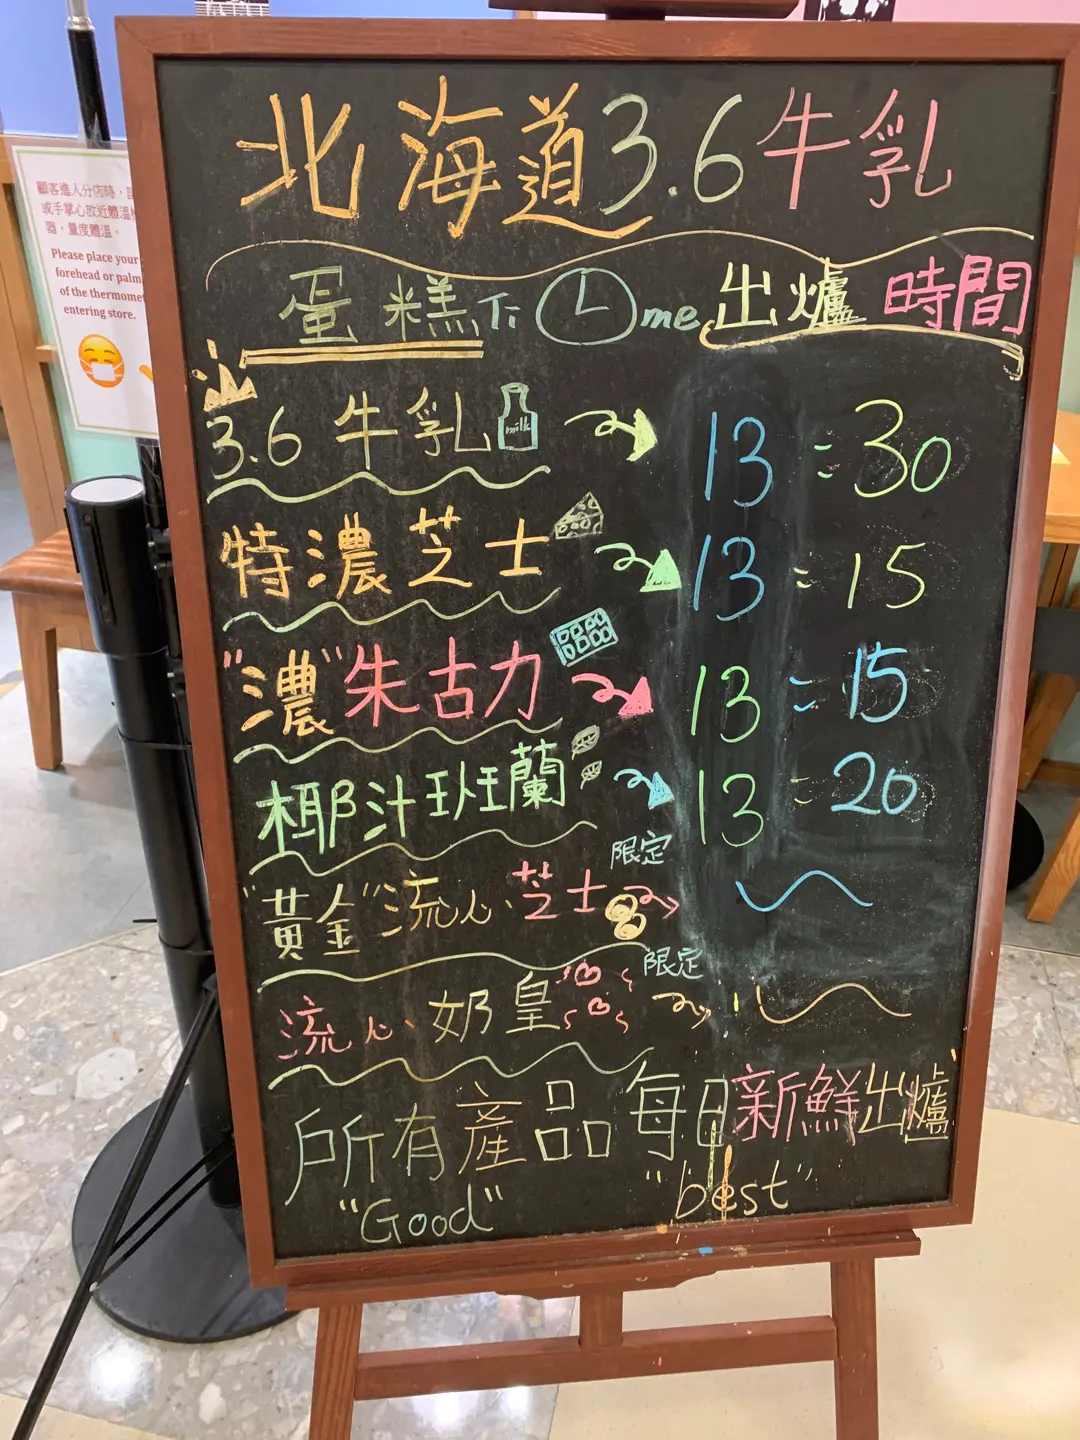 北海道3.6牛乳
蛋糕 Time 出爐時間
3.6牛乳 milk 13:30
特濃芝士 13:15
"濃"朱古力 13:15
椰汁班蘭 13:20
限定
"黃金"流心芝士
限定
流心奶皇
所有產品每日新鮮出爐
"Good" "best"
顧客進入分店時，
或手掌心放近體溫
器，量度體溫。
Please place your
forehead or palm
of the thermome
entering store.